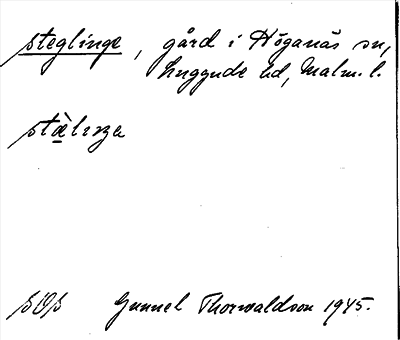 steglinge, gård i Höganäs sn,
Luggude hd, Malm. l.
stæ̀lıŋa
Gunnel Thorwaldson 1945.